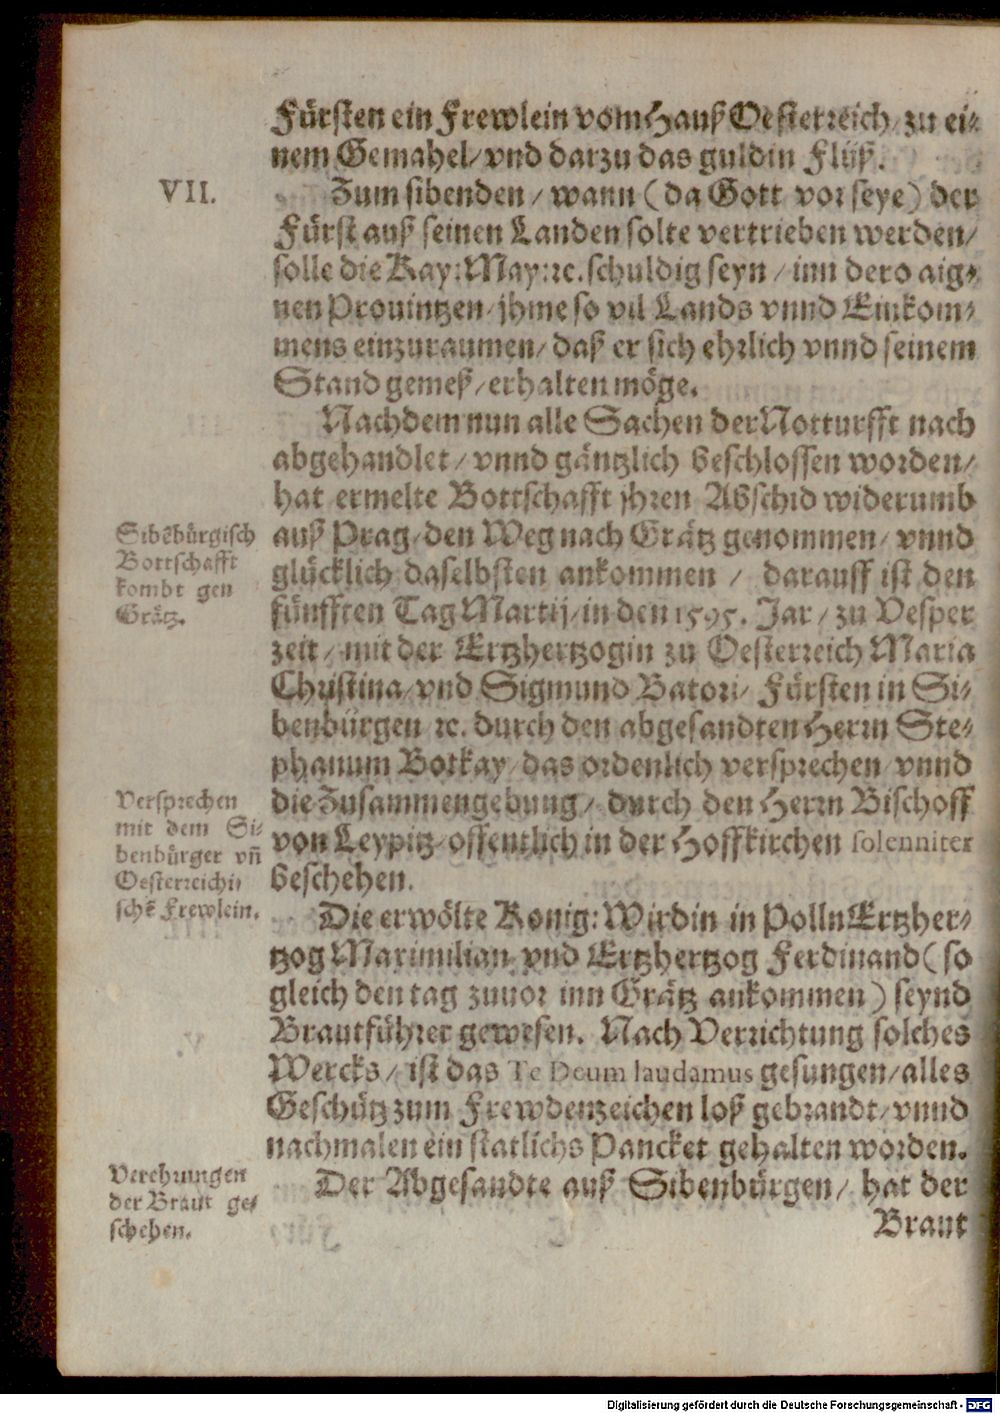 Fürsten ein Frewlein vom Hauß Oesterreich/ zu ei⸗
nem Gemahel/ vnd darzu das guldin Flüß.
VII.
Zum sibenden / wann ( da Gott vor seye ) der
Fürst auß seinen Landen solte vertrieben werden/
solle die Kay: May: ꝛc. schuldig seyn / inn dero aig⸗
nen Prouintzen/ jhme so vil Lands vnnd Einkom⸗
mens einzuraumen/ daß er sich ehrlich vnnd seinem
Stand gemeß/ erhalten möge.
Nachdem nun alle Sachen der Notturfft nach
abgehandlet / vnnd gäntzlich beschlossen worden/
hat ermelte Bottschafft jhren Abschid widerumb
Sibẽbürgisch
Bottschafft
kombt gen
Grätz.
auß Prag/ den Weg nach Grätz genommen/ vnnd
glücklich daselbsten ankommen / darauff ist den
fünfften Tag Martij/ in den 1595. Jar / zu Vesper
zeit / mit der Ertzhertzogin zu Oesterreich Maria
Christina/ vnd Sigmund Batori/ Fürsten in Si⸗
benbürgen ꝛc. durch den abgesandten Herrn Ste⸗
phanum Botkay/ das ordenlich versprechen vnnd
Versprechen
mit dem Si⸗
benbürger vñ
Oesterreichi⸗
schẽ Frewlein.
die Zusammengebung / durch den Herrn Bischoff
von Leypitz/ offentlich in der Hoffkirchen solenniter
beschehen.
Die erwölte Konig: Wirdin in Polln Ertzher⸗
tzog Maximilian/ vnd Ertzhertzog Ferdinand ( so
gleich den tag zuuor inn Grätz ankommen ) seynd
Brautführer gewesen. Nach Verrichtung solches
Wercks / ist das Te Deum laudamus gesungen/ alles
Geschütz zum Frewdenzeichen loß gebrandt/ vnnd
nachmalen ein statlichs Pancket gehalten worden.
Verehrungen
der Braut ge⸗
schehen.
Der Abgesandte auß Sibenbürgen / hat der
Braut
Digitalisierung gefördert durch die Deutsche Forschungsgemeinschaft - DFG